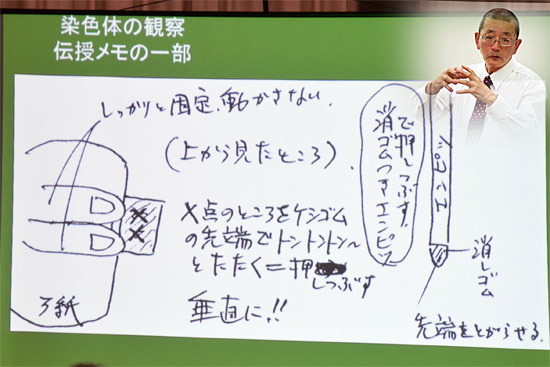 染色体の観察
伝授メモの一部
しっかりと固定、動かさない.
(上から見たところ).
X点のところをケシゴム
の先端でトントントン〜
とたたく=押
しつぶす
垂直に!!
ろ紙
消ゴムつきエンピツ
で押しつぶす!
エンピツ
消しゴム
先端をとがらせる.